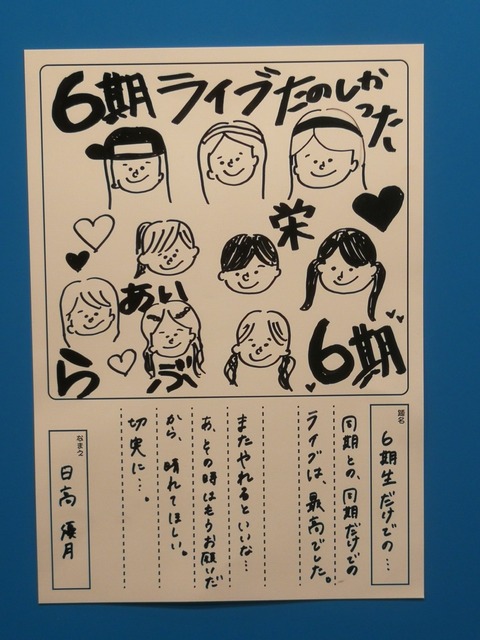 6期ライブたのしかった
栄
あい
らぶ
6期
題名
6期生だけでの…
同期との、同期だけでの
ライブは、最高でした。
またやれるといいな…
あ、その時はもうお願いだ
から、晴れてほしい。
切実に…。
なまえ
日高 優月